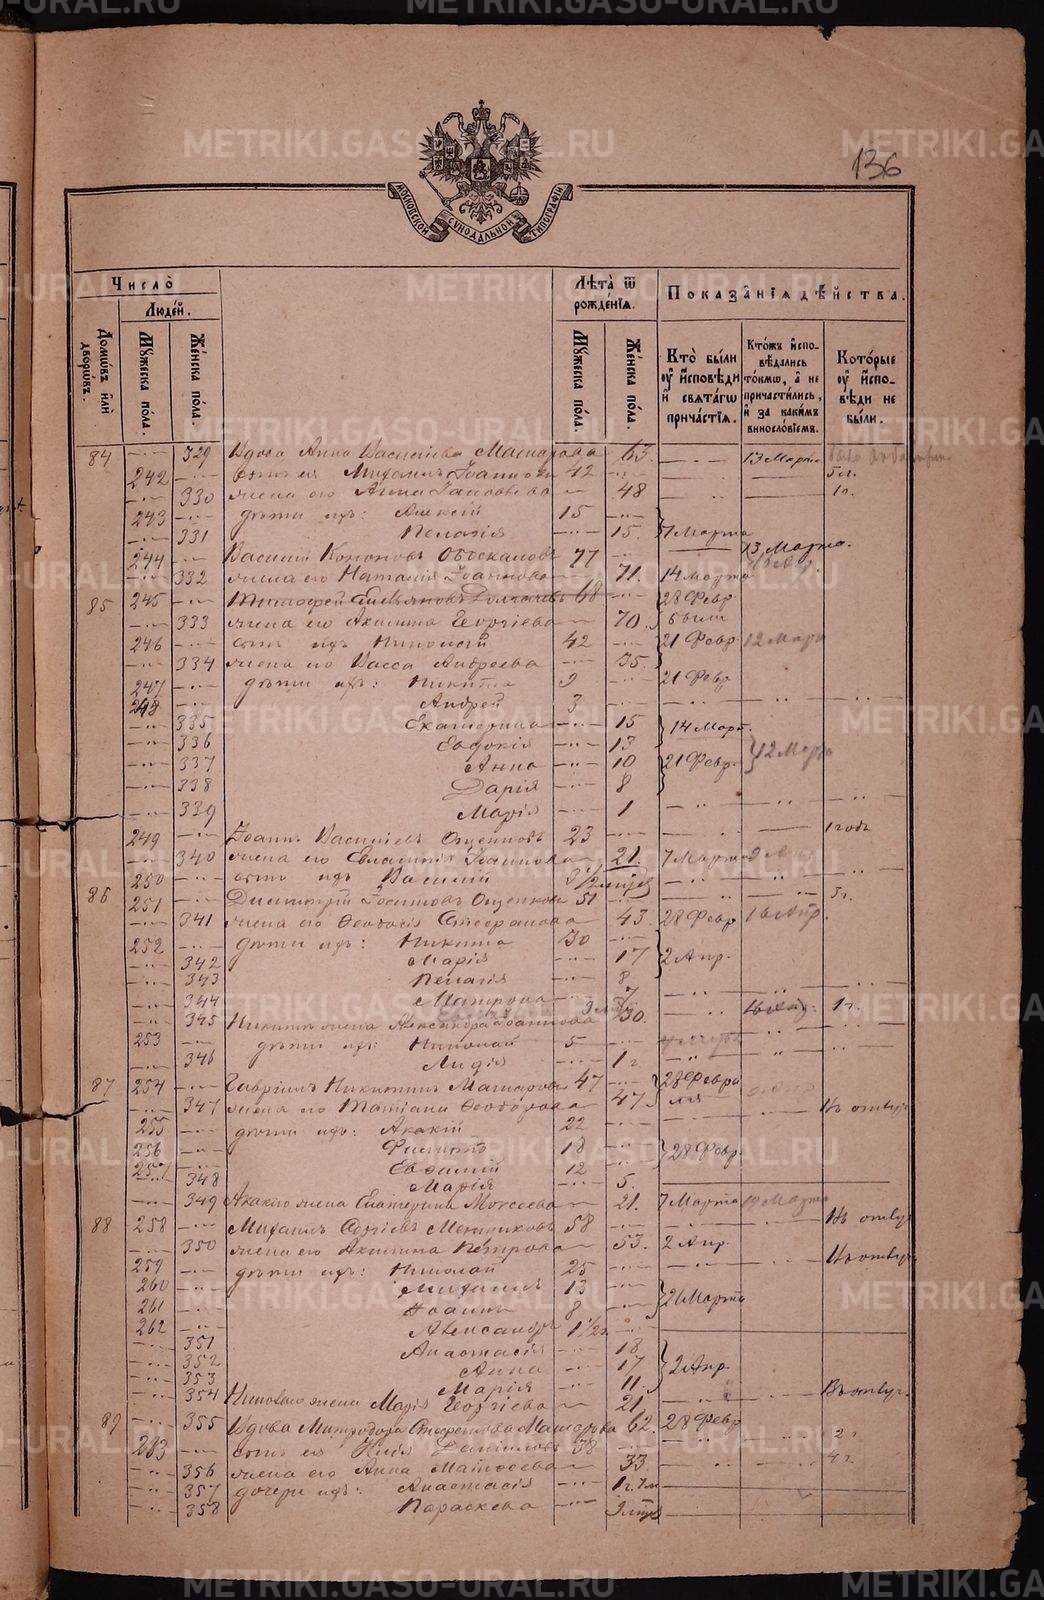 METRIKI.GASO-URAL.RU
136
МОСКОВСКОЙ СѴНОДАЛЬНОЙ ТИПОГРАФІИ
Число̀
Людей.
Домѡвъ и҆лѝ дворѡвъ.
Мꙋжеска по́ла.
Же́нска по́ла.
Лѣта̀ ѿ рожде́нїѧ.
Мꙋжеска по́ла.
Же́нска по́ла.
Показа̑нїѧ дѣ́йства.
Кто̀ бы́ли ᲂу҆ и҆сповѣди и҆ свѧта́гѡ прича́стїѧ.
Кто́жъ и҆спо-вѣдались то́кмѡ, а҆ не причасти́лись, и҆ за каки́мъ винословїемъ.
Кото́рые ᲂу҆ и҆спо-вѣди не бы́ли.
84 329 Вдова Анна Васильева Машарова 63. 13 Марта
242 сынъ ея Михаилъ Іоанновъ 42 5 л.
330 жена его Анна 48 1 г.
243 дѣти ихъ: Алексій 15
331 Пелагія 15. 7 Марта
244 Василій Кононовъ 77 13 Марта.
332 жена его Наталія Іоаннова 71. 14 марта
85 245 Тимофей Емельяновъ 68 28 Февр
333 жена его Акилина Георгіева 70.
246 сынъ ихъ Николай 42 21 Февр 12 Март
334 жена его Васса Андреева 35.
247 дѣти ихъ: Никита 9 21 Февр
248 Андрей 3
335 Екатерина 15 14 Март.
336 Евдокія 13
337 Анна 10 21 Февр 12 Марта
338 Дарія 8
339 Марія 1
249 Іоаннъ Васильевъ Ощепковъ 23 1 годъ
340 жена его Іоаннова 21. 7 Марта
250 сынъ ихъ Василій
86 251 Димитрій Ощепковъ 51 3 г.
341 жена его Ѳеодосія Стефанова 43. 28 Февр 16 Апр.
252 дѣти ихъ: Никита 20
342 Марія 17 2 Апр.
343 Пелагія 8
344 Матрона 7
345 Никиты жена Александра Іоаннова 20. 1 г.
253 дѣти ихъ: Николай 5
346 Лидія 1 г
87 254 Гавріилъ Никитинъ Машаровъ 47 28 Февра
347 жена его Татіана Ѳеодорова 47. ля
255 дѣти ихъ: Акакій 22 Въ отлуч
256 Филиппъ 18 28 Февр
257 Евѳимій 12
348 Марія 5.
349 Акакія жена Екатерина Моисеева 21. 7 Марта 10 Марта
88 258 Михаилъ Меньшиковъ 58 Въ отлуч
350 жена его Акилина Петрова 53. 2 Апр.
259 дѣти ихъ: Николай 25 Въ отлуч
260 Михаилъ 13
261 Іоаннъ 8 26 Марта
262 Александръ 1 1/2 г.
351 Анастасія 18.
352 Анна 17 2 Апр.
353 Марія 11.
354 Николая жена Марія Георгіева 21 Въ отлуч.
89 355 Вдова Митродора Стефанова Машарова 62. 28 Февр
263 сынъ ея Данииловъ 38 2 г
356 жена его Анна Матвѣева 33. 4 г.
357 дочери ихъ: Анастасія
358 Параскева